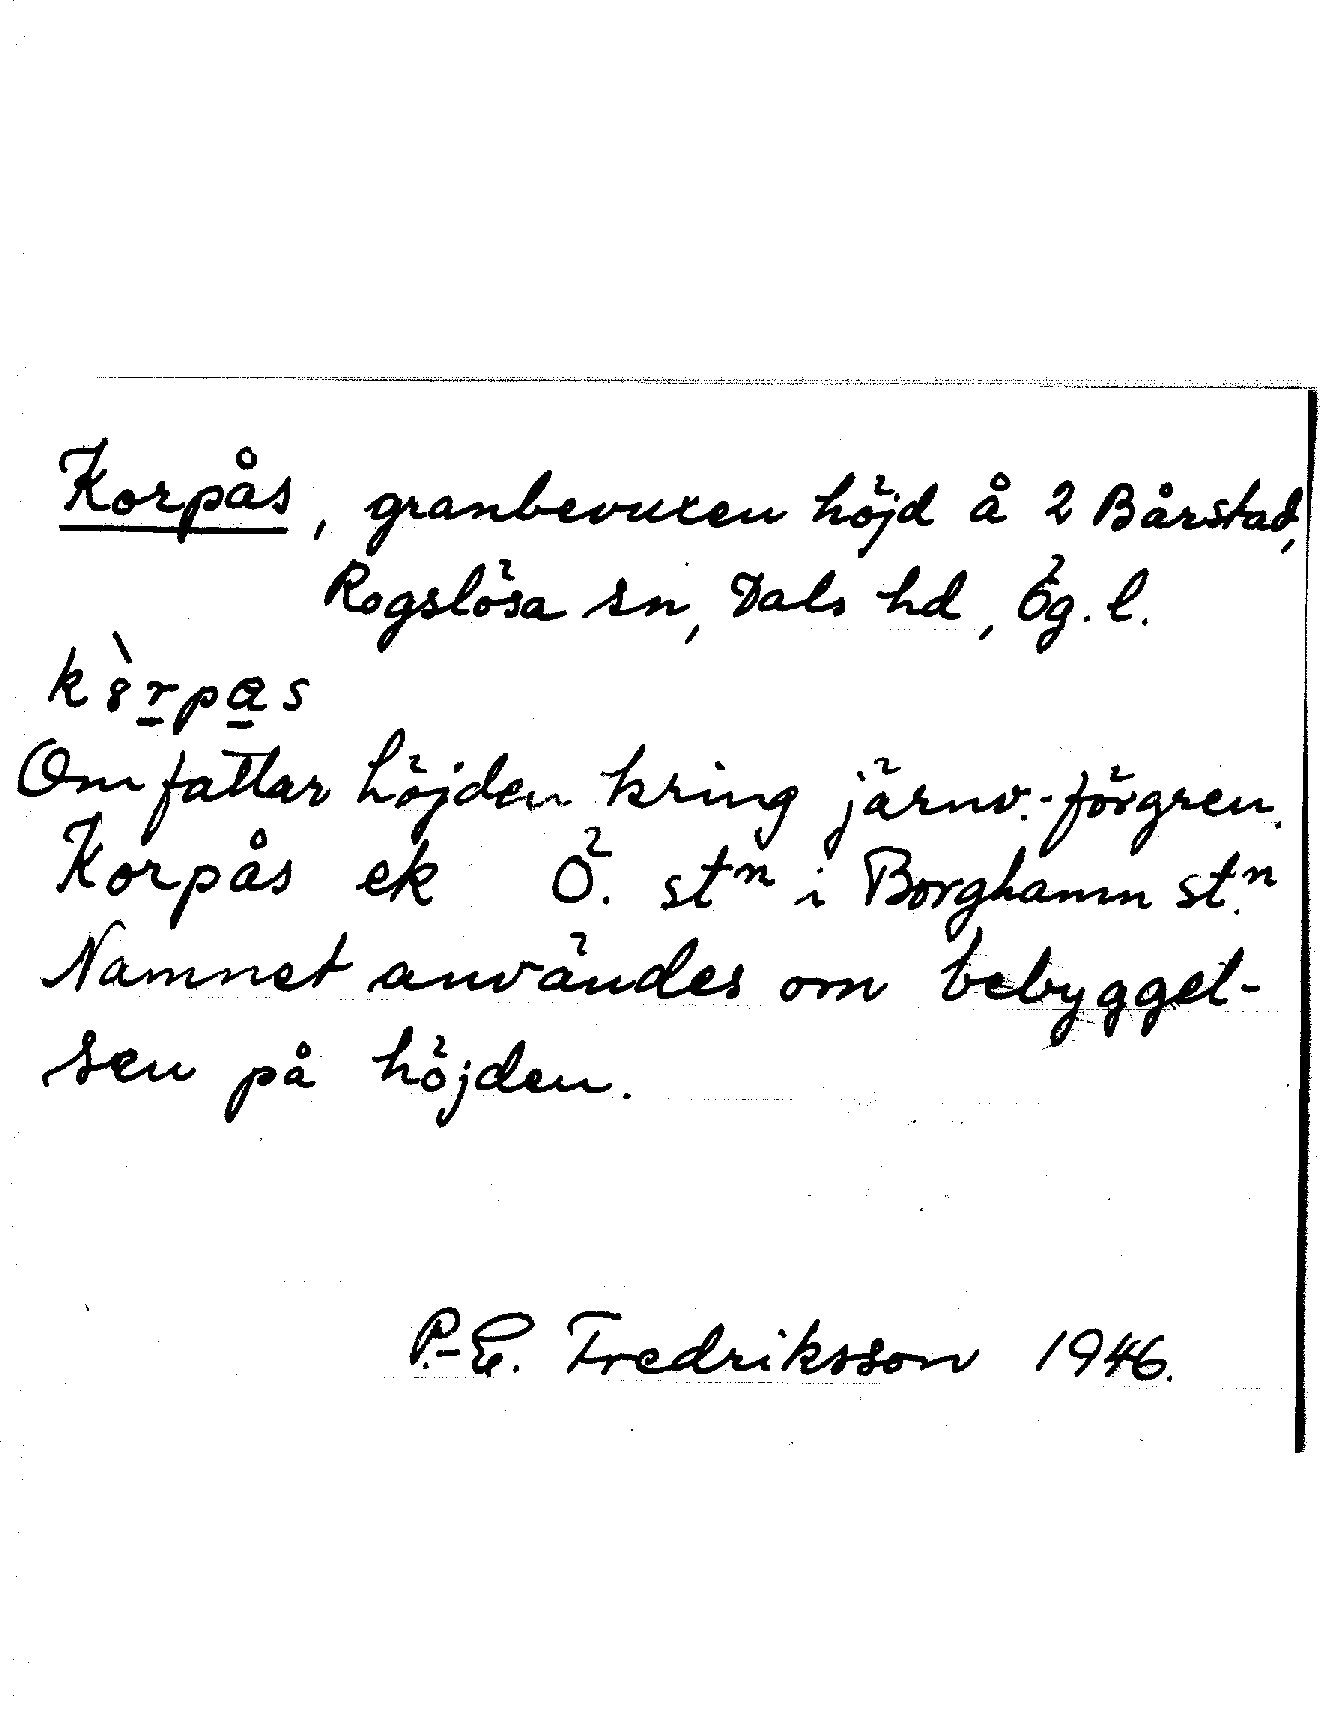 Korpås, granbevuxen höjd å 2 Bårstad,
Rogslösa sn, Dals hd, Ög. l.
k8̀rpas
Omfattar höjden kring järnv.-förgren.
Korpås ek Ö. stn i Borghamn stn.
Namnet användes om bebyggel-
sen på höjden.
P.-E. Fredriksson 1946.